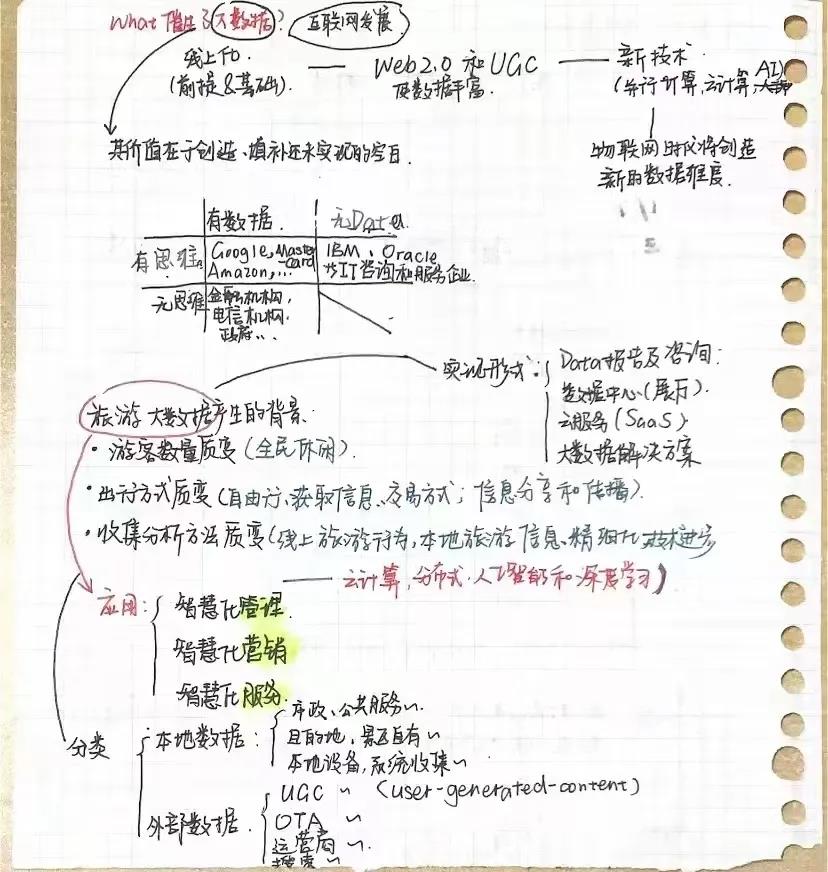 What 催生了大数据? 互联网发展
线上化 — Web2.0 和 UGC — 新技术.
(前提&基础). 使数据丰富. (并行计算,云计算,AI)
其价值在于创造、填补还未实现的空白.
物联网时代将创造
新的数据维度.
有数据. 无Data.
有思维. Google, Mastercard Amazon,... IBM、Oracle 等IT咨询和服务企业.
无思维 金融机构, 电信机构. 政府...
实现形式: Data报告及咨询;
数据中心(展厅).
云服务(SaaS)
大数据解决方案
旅游大数据产生的背景.
· 游客数量质变(全民休闲).
· 出行方式质变(自由行、获取信息、交易方式;信息分享和传播).
· 收集分析方法质变(线上旅游行为,本地旅游信息、精细化 技术进步
— 云计算,分布式.人工智能和深度学习)
应用: 智慧化管理.
智慧化营销
智慧化服务.
分类
本地数据: 市政、公共服务~.
目的地,景区自有~
本地设备,系统收集~
外部数据. UGC ~ (user-generated-content)
OTA ~
运营商~.
搜索~